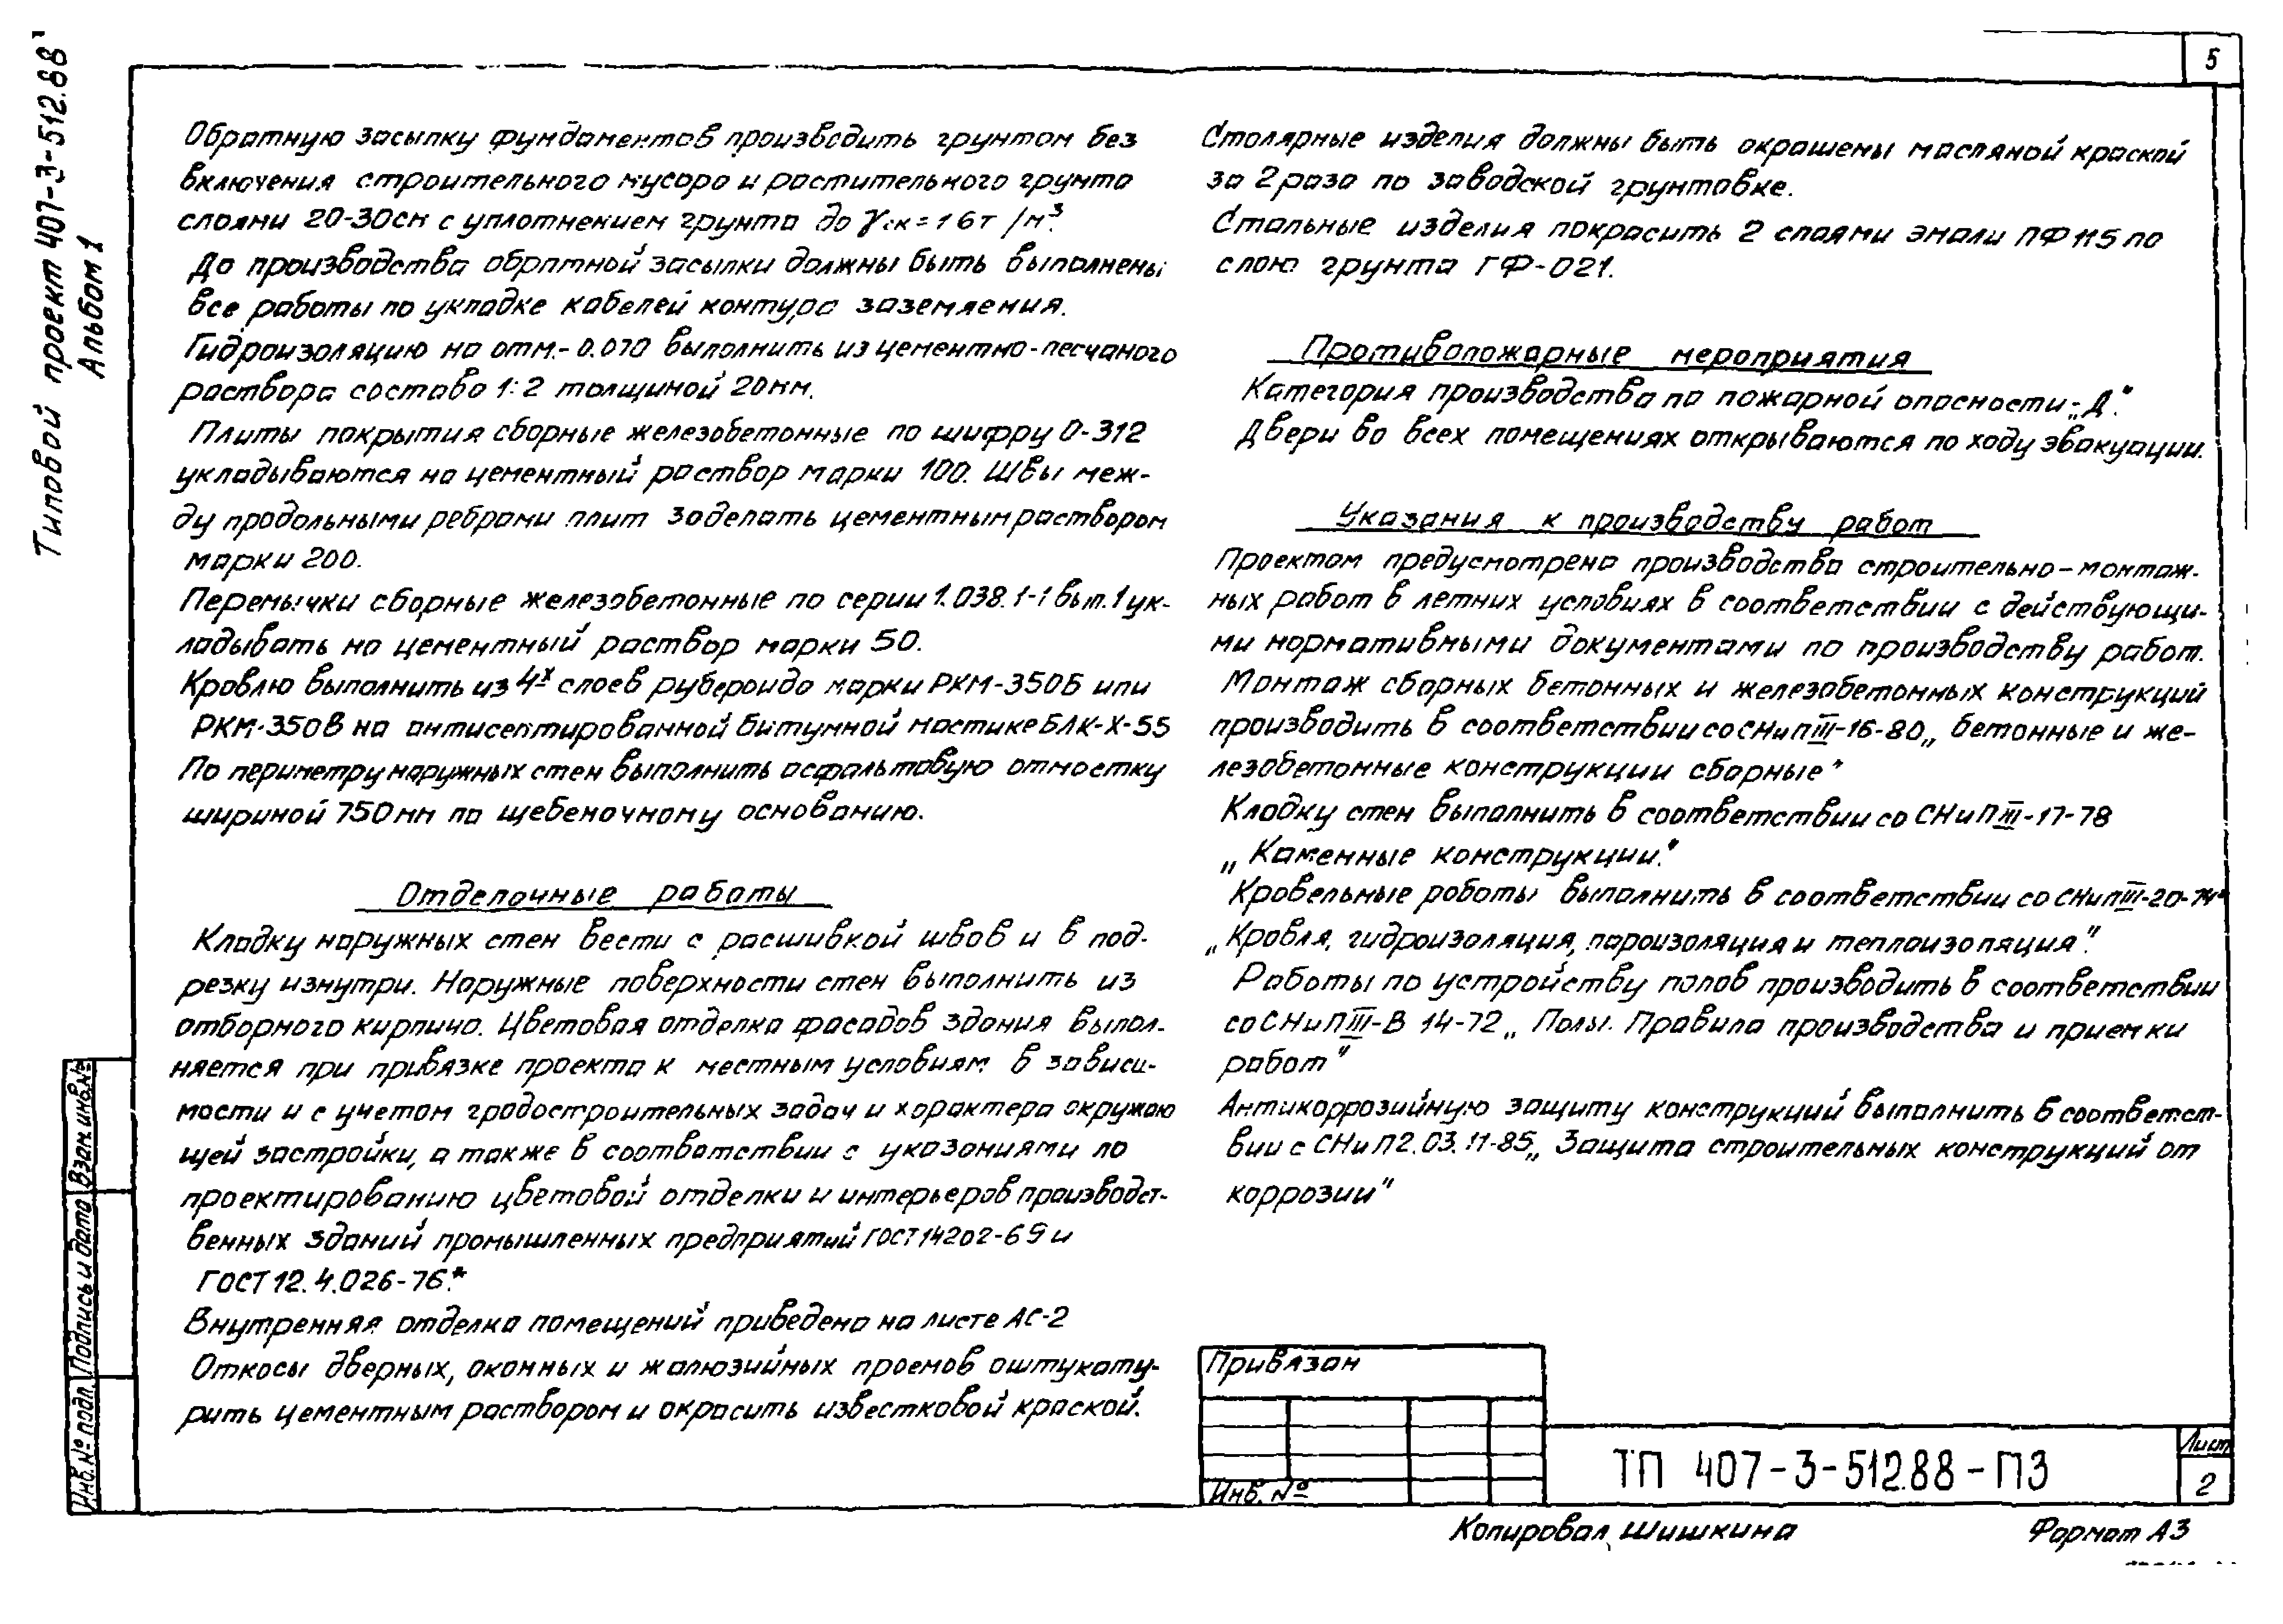 Типовой проект 407-3-512.88
Альбом 1
5
Обратную засыпку фундаментов производить грунтом без
включения строительного мусора и растительного грунта
слоями 20-30см с уплотнением грунта до γск=1 6т/м³.
До производства обратной засыпки должны быть выполнены
все работы по укладке кабелей контура заземления.
Гидроизоляцию на отм.-0.070 выполнить из цементно-песчаного
раствора состава 1:2 толщиной 20мм.
Плиты покрытия сборные железобетонные по шифру 0-312
укладываются на цементный раствор марки 100. Швы меж-
ду продольными ребрами плит заделать цементным раствором
марки 200.
Перемычки сборные железобетонные по серии 1.038.1-1 вып.1 ук-
ладывать на цементный раствор марки 50.
Кровлю выполнить из 4х слоев рубероида марки РКМ-350Б или
РКМ-350В на антисептированной битумной мастике БЛК-Х-55
По периметру наружных стен выполнить асфальтовую отмостку
шириной 750мм по щебеночному основанию.
Отделочные работы
Кладку наружных стен вести с расшивкой швов и в под-
резку изнутри. Наружные поверхности стен выполнить из
отборного кирпича. Цветовая отделка фасадов здания выпол-
няется при привязке проекта к местным условиям в зависи-
мости и с учетом градостроительных задач и характера окружаю
щей застройки, а также в соответствии с указаниями по
проектированию цветовой отделки и интерьеров производст-
венных зданий промышленных предприятий ГОСТ 14202-69 и
ГОСТ 12.4.026-76.*
Внутренняя отделка помещений приведена на листе АС-2
Откосы дверных, оконных и жалюзийных проемов оштукату-
рить цементным раствором и окрасить известковой краской.
Столярные изделия должны быть окрашены масляной краской
за 2 раза по заводской грунтовке.
Стальные изделия покрасить 2 слоями эмали ПФ 115 по
слою грунта ГФ-021.
Противопожарные мероприятия
Категория производства по пожарной опасности-„Д".
Двери во всех помещениях открываются по ходу эвакуации.
Указания к производству работ
Проектом предусмотрено производство строительно-монтаж-
ных работ в летних условиях в соответствии с действующи-
ми нормативными документами по производству работ.
Монтаж сборных бетонных и железобетонных конструкций
производить в соответствии со СНиП III-16-80 „ бетонные и же-
лезобетонные конструкции сборные"
Кладку стен выполнить в соответствии со СНиП III-17-78
„ Каменные конструкции."
Кровельные работы выполнить в соответствии со СНиП III-20-74*
„Кровля, гидроизоляция, пароизоляция и теплоизоляция".
Работы по устройству полов производить в соответствии
со СНиП III-В 14-72 „ Полы. Правила производства и приемки
работ"
Антикоррозийную защиту конструкций выполнить в соответст-
вии с СНиП 2.03.11-85 „ Защита строительных конструкций от
коррозии"
Взам. инв.№
Подпись и дата
Инв.№ подл.
Привязан
Инв. №
ТП 407-3-512.88-ПЗ
Лист
2
Копировал Шишкина
Формат А3